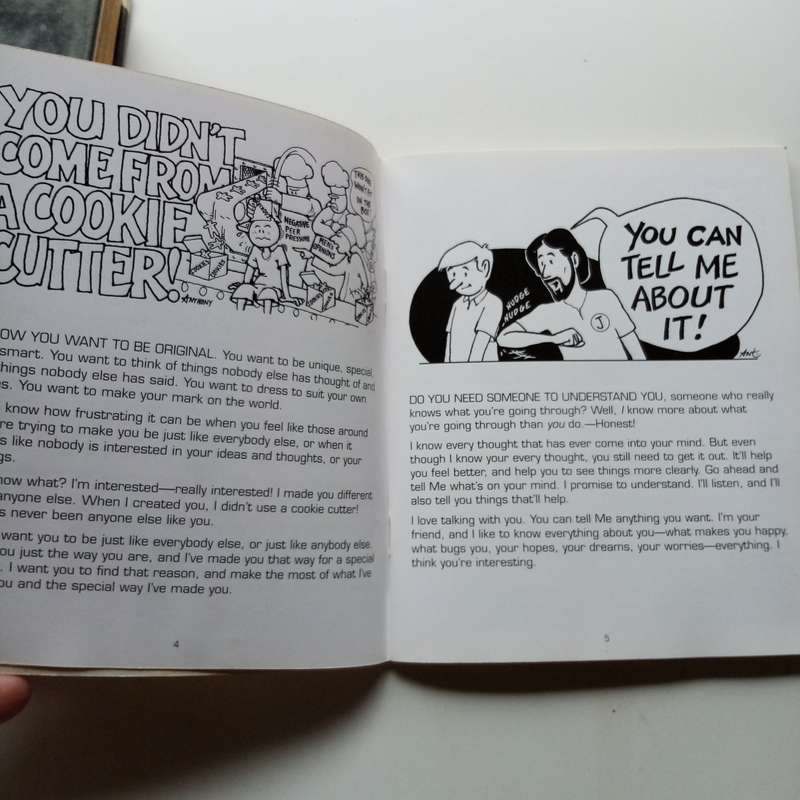 YOU DIDN'T
COME FROM
A COOKIE
CUTTER!
NEGATIVE
PEER
PRESSURE
ANTHONY
OW YOU WANT TO BE ORIGINAL. You want to be unique, special,
smart. You want to think of things nobody else has thought of and
things nobody else has said. You want to dress to suit your own
s. You want to make your mark on the world.
know how frustrating it can be when you feel like those around
re trying to make you be just like everybody else, or when it
s like nobody is interested in your ideas and thoughts, or your
gs.
now what? I'm interested—really interested! I made you different
anyone else. When I created you, I didn't use a cookie cutter!
s never been anyone else like you.
want you to be just like everybody else, or just like anybody else.
ou just the way you are, and I've made you that way for a special
. I want you to find that reason, and make the most of what I've
ou and the special way I've made you.
4
YOU CAN
TELL ME
ABOUT
IT!
NUDGE
NUDGE
J
DO YOU NEED SOMEONE TO UNDERSTAND YOU, someone who really
knows what you're going through? Well, I know more about what
you're going through than you do.—Honest!
I know every thought that has ever come into your mind. But even
though I know your every thought, you still need to get it out. It'll help
you feel better, and help you to see things more clearly. Go ahead and
tell Me what's on your mind. I promise to understand. I'll listen, and I'll
also tell you things that'll help.
I love talking with you. You can tell Me anything you want. I'm your
friend, and I like to know everything about you—what makes you happy,
what bugs you, your hopes, your dreams, your worries—everything. I
think you're interesting.
5